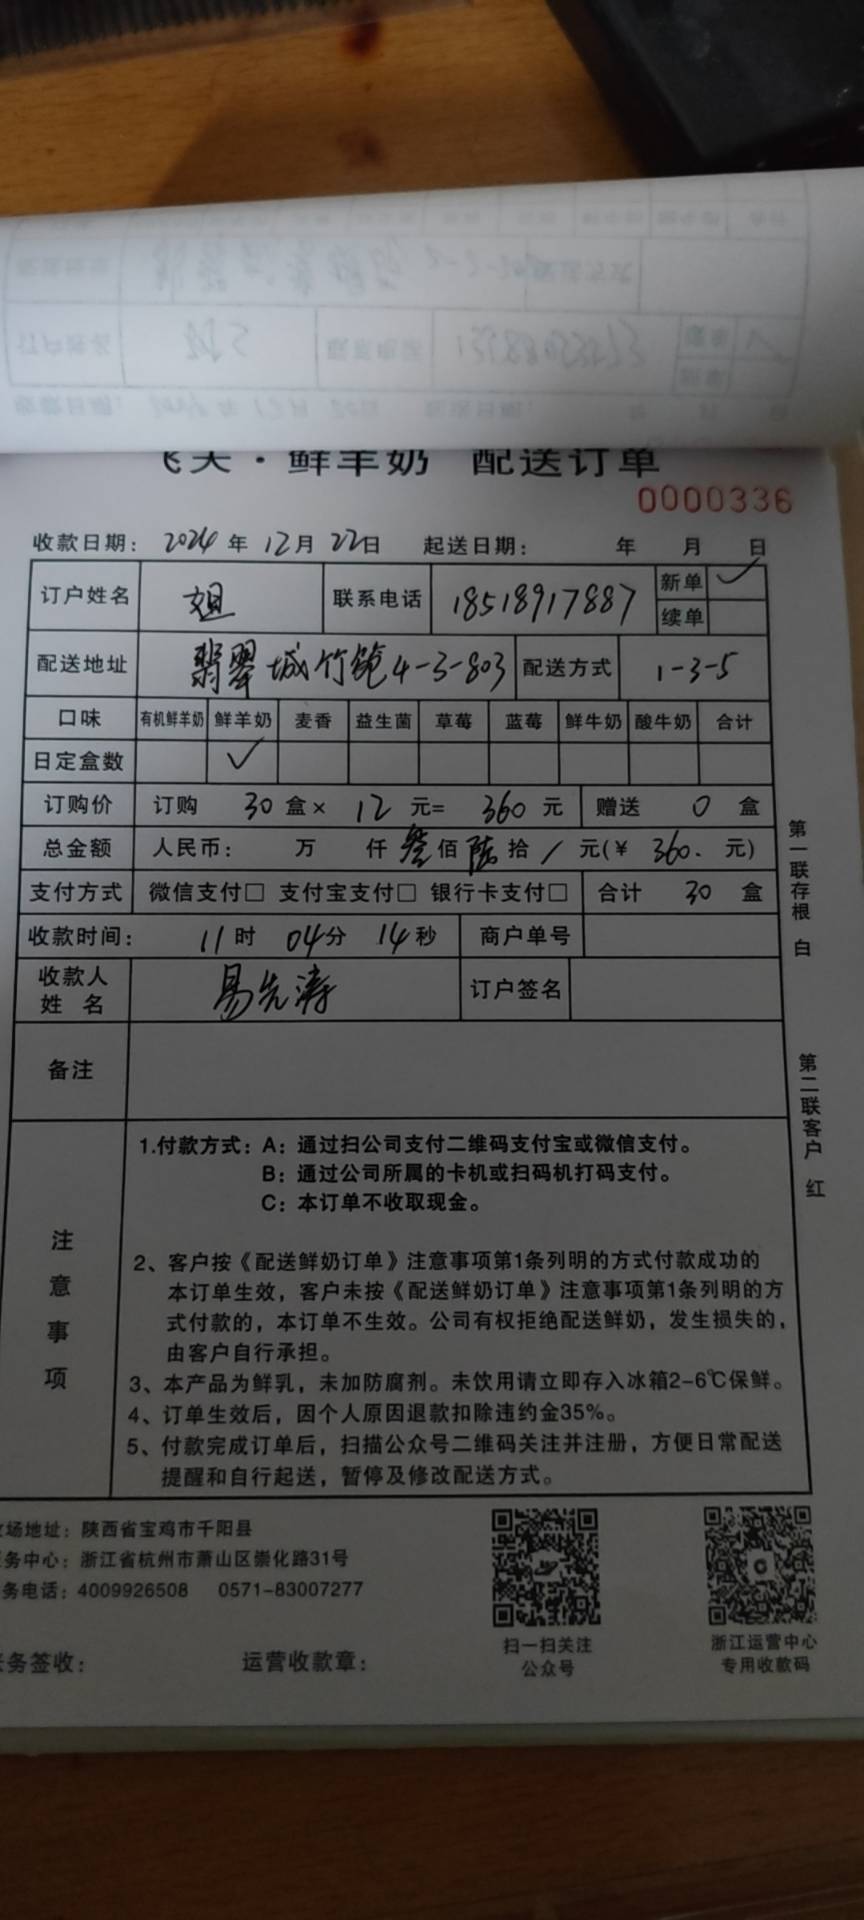 飞天·鲜羊奶 配送订单
0000336
收款日期： 2024年 12月 22日 起送日期： 年 月 日
订户姓名 姐 联系电话 18518917887 新单 ✓
续单
配送地址 翡翠城竹苑4-3-803 配送方式 1-3-5
口味 有机鲜羊奶 鲜羊奶 麦香 益生菌 草莓 蓝莓 鲜牛奶 酸牛奶 合计
日定盒数 ✓
订购价 订购 30 盒× 12 元= 360 元 赠送 0 盒
总金额 人民币： 万 仟 叁 佰 陆 拾 / 元(¥ 360. 元)
支付方式 微信支付□ 支付宝支付□ 银行卡支付□ 合计 30 盒
收款时间： 11时 04分 14秒 商户单号
收款人姓名 易先涛 订户签名
备注
注意事项
1.付款方式：A：通过扫公司支付二维码支付宝或微信支付。
B：通过公司所属的卡机或扫码机打码支付。
C：本订单不收取现金。
2、客户按《配送鲜奶订单》注意事项第1条列明的方式付款成功的
本订单生效，客户未按《配送鲜奶订单》注意事项第1条列明的方
式付款的，本订单不生效。公司有权拒绝配送鲜奶，发生损失的，
由客户自行承担。
3、本产品为鲜乳，未加防腐剂。未饮用请立即存入冰箱2-6℃保鲜。
4、订单生效后，因个人原因退款扣除违约金35%。
5、付款完成订单后，扫描公众号二维码关注并注册，方便日常配送
提醒和自行起送，暂停及修改配送方式。
第一联存根 白
第二联客户 红
场地址：陕西省宝鸡市千阳县
务中心：浙江省杭州市萧山区崇化路31号
务电话：4009926508 0571-83007277
扫一扫关注
公众号
浙江运营中心
专用收款码
务签收： 运营收款章：